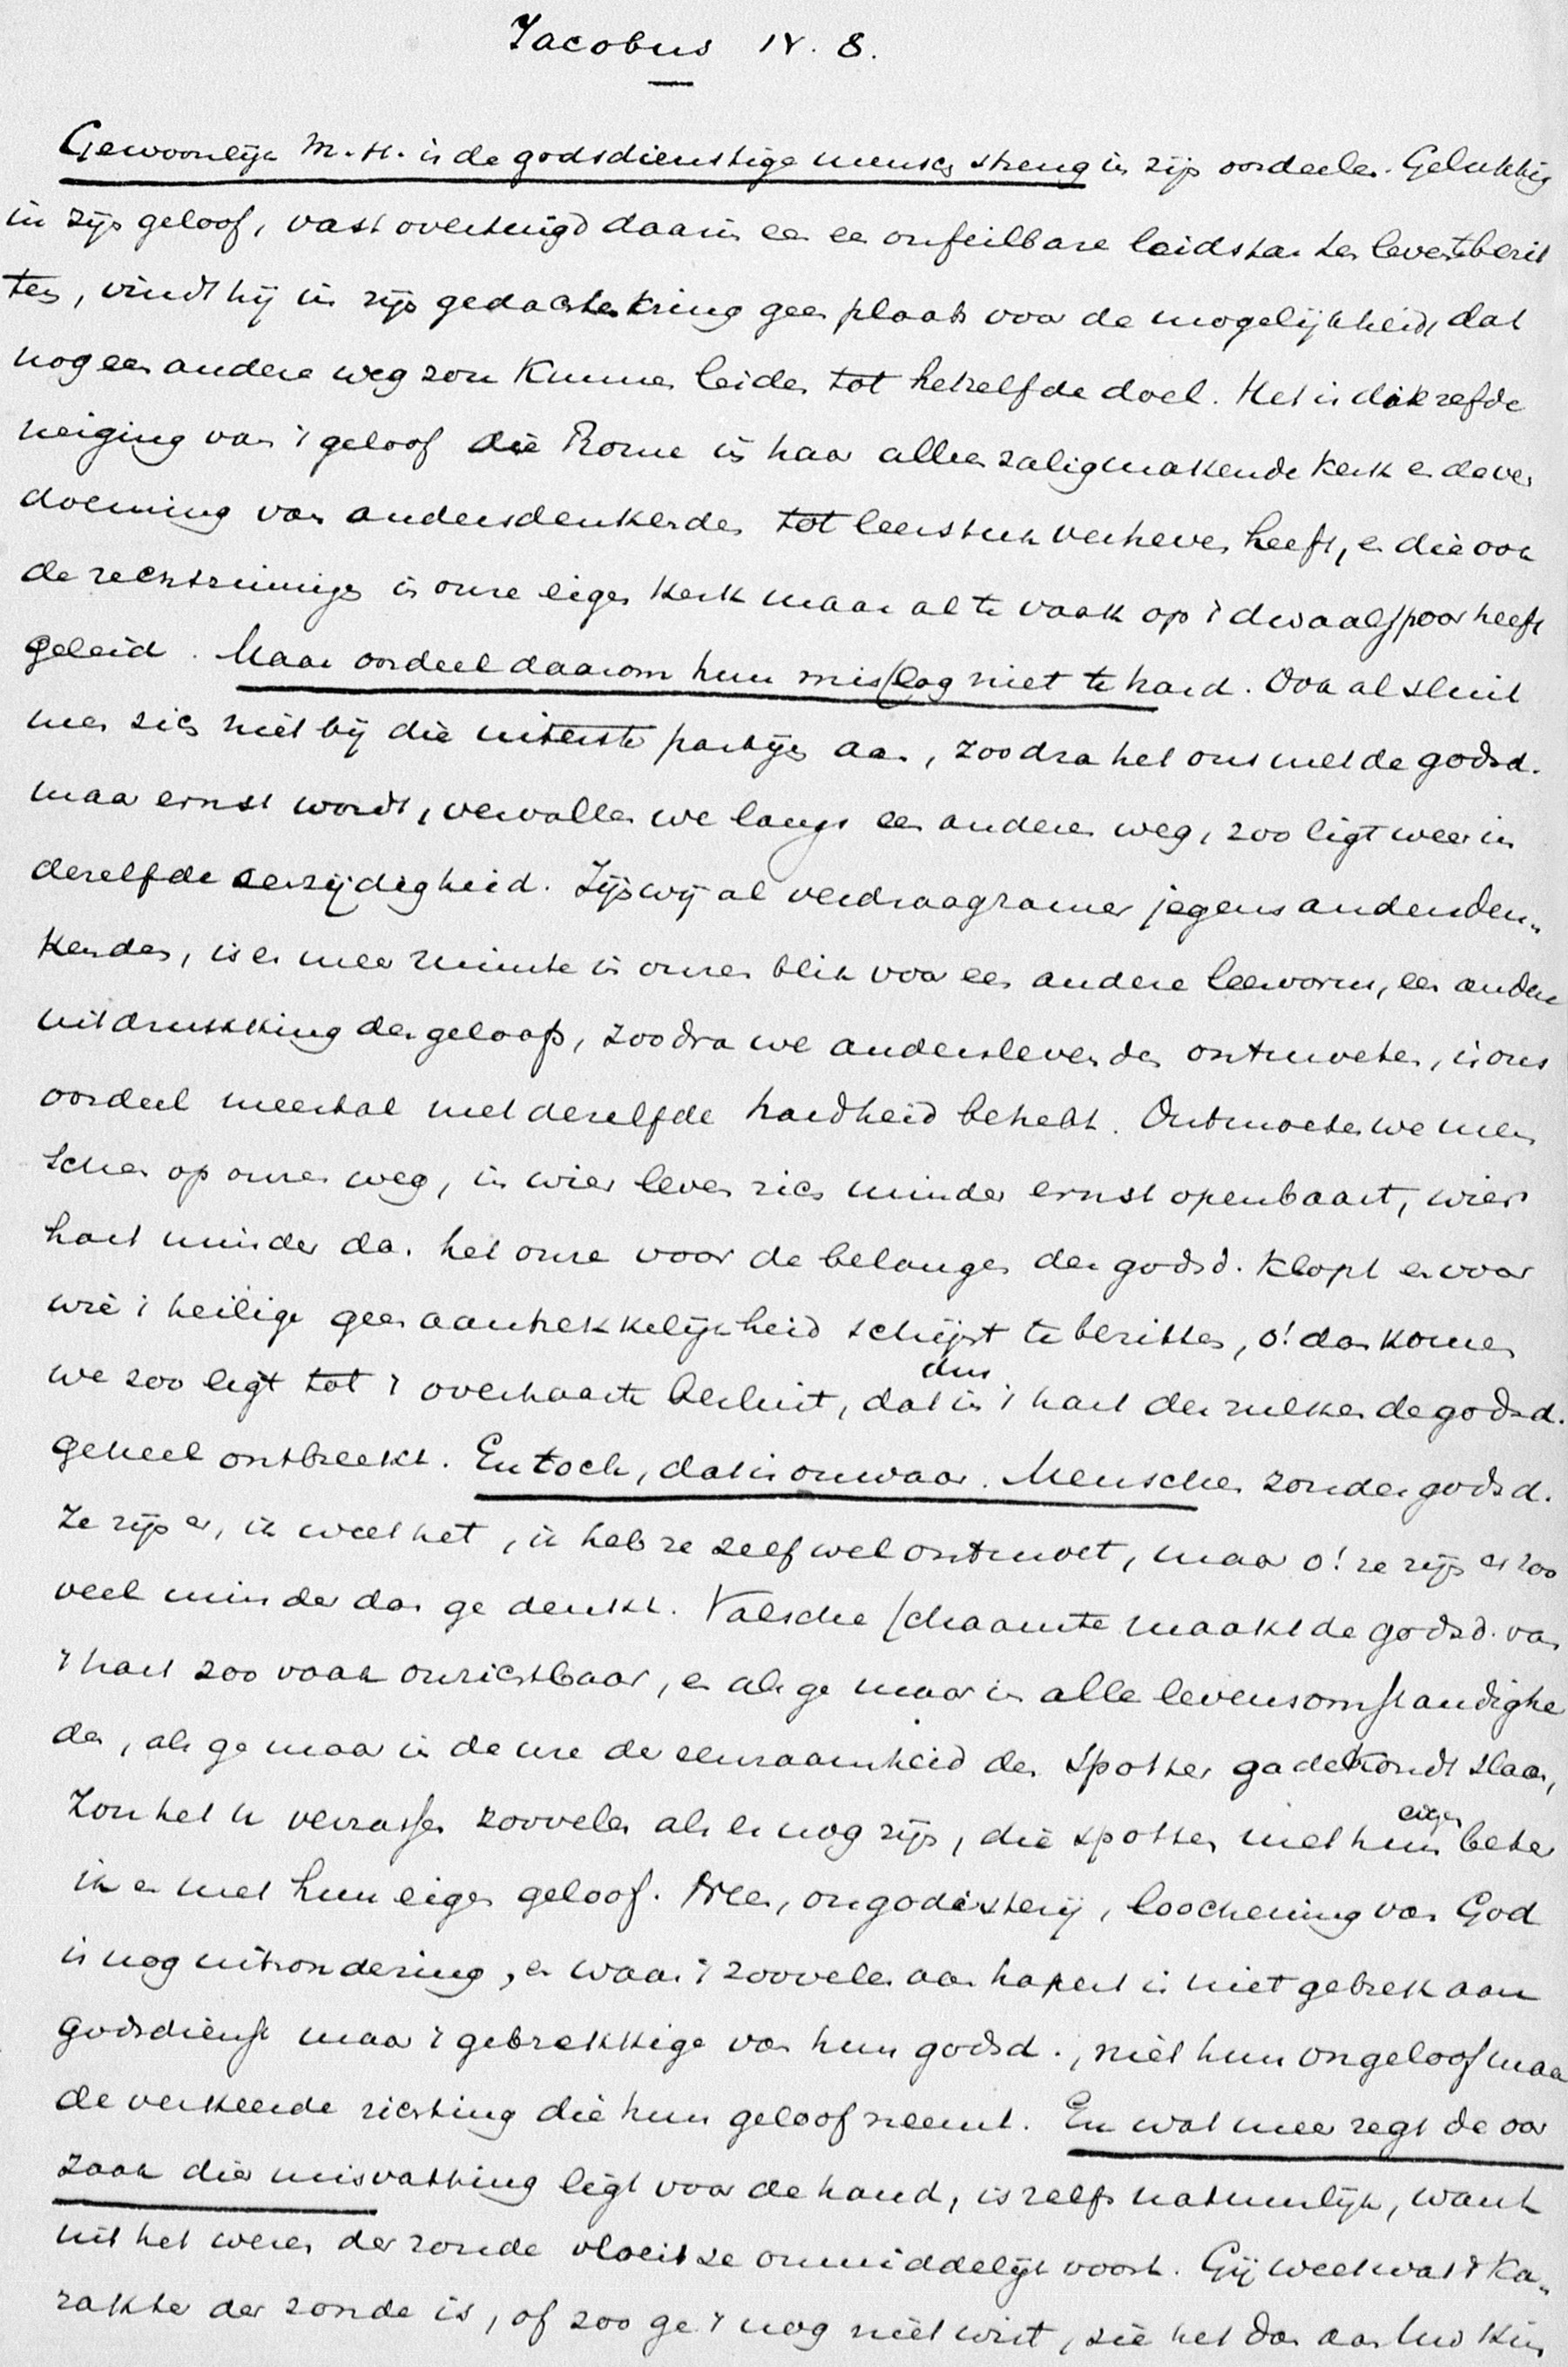 Jacobus IV. 8.
Gewoonlijk M.H. is de godsdienstige mensch streng in zijn oordeelen. Gelukkig
in zijn geloof, vast overtuigd daarin een en onfeilbare leidstar ten leven te bezit
ten, vindt hij in zijn gedachtenkring geen plaats voor de mogelijkheid, dat
nog een andere weg zou kunnen leiden tot hetzelfde doel. Het is dikzelfde
neiging van 't geloof die Rome in haar alleen zaligmakende kerk en de ver
doeming van andersdenkenden tot leerstuk verheven heeft, en die ook
de rechtzinnige in onze eigen kerk maar al te vaak op 't dwaalspoor heeft
geleid. Maar oordeel daarom hun misslag niet te hard. Ook al sluit
men zich niet bij die uiterste partijen aan, zoodra het ons met de godsd.
maar ernst wordt, vervallen we langs een anderen weg, zoo ligt weer in
dezelfde eenzijdigheid. Zijn wij al verdraagzamer jegens andersden„
kenden, is er meer ruimte in onzen blik voor een andere leervorm, een andere
uitdrukking des geloofs, zoodra we anderslevenden ontmoeten, is ons
oordeel meestal met dezelfde hardheid behebt. Ontmoeten we men
schen op onzen weg, in wier leven zich minder ernst openbaart, wier
hart minder dan het onze voor de belangen der godsd. klopt en voor
wie 't heilige geen aantrekkelijkheid schijnt te bezitten, o! dan komen
we zoo ligt tot 't overhaaste besluit, dat dus in 't hart der zulken de godsd.
geheel ontbreekt. En toch, dat is onwaar. Menschen zonder godsd.
Ze zijn er, ik weet het, ik heb ze zelf wel ontmoet, maar o! ze zijn er zoo
veel minder dan ge denkt. Valsche schaamte maakt de godsd. van
't hart zoo vaak onzichtbaar, en als ge maar in alle levensomstandighe
den, als ge maar in de ure der eenzaamheid den spotter gadekondt slaan,
Zou het u verrassen zoovelen als er nog zijn, die spotten met hun eigen beter
ik en met hun eigen geloof. Neen, ongodisterij, loochening van God
is nog uitzondering, en waar 't zoovelen aan hapert is niet gebrek aan
godsdienst maar 't gebrekkige van hun godsd., niet hun ongeloof maar
de verkeerde richting die hun geloof neemt. En wat meer zegt de oor
zaak dier misvatting ligt voor de hand, is zelfs natuurlijk, want
uit het wezen der zonde vloeit ze onmiddelijk voort. Gij weet wat 't ka„
rakter der zonde is, of zoo ge 't nog niet wist, zie het dan aan Uw kin